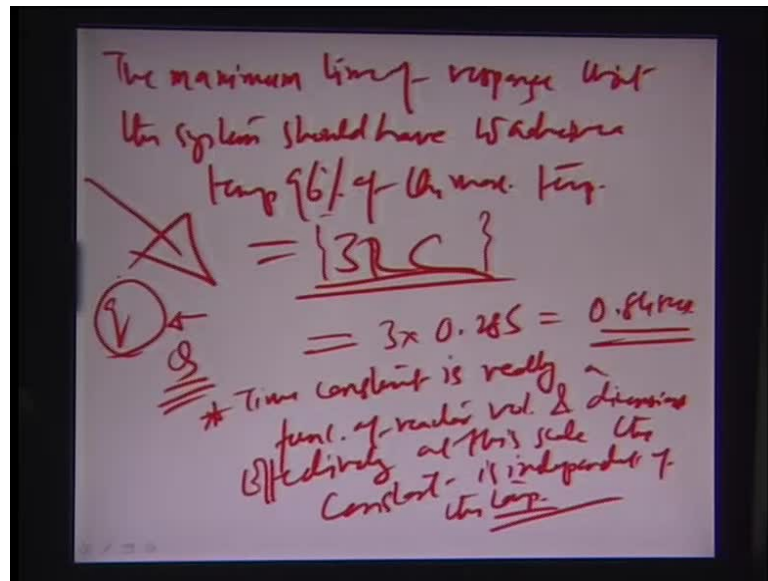 The maximum time of response that
the system should have to achieve a
temp 96% of the max. temp.
= {3RC}
= 3 x 0.285 = 0.84 sec
q
Q
* Time constant is really a
func. of reactor vol. & dimensions
Effectively at this scale the
Constant is independent of
the temp.